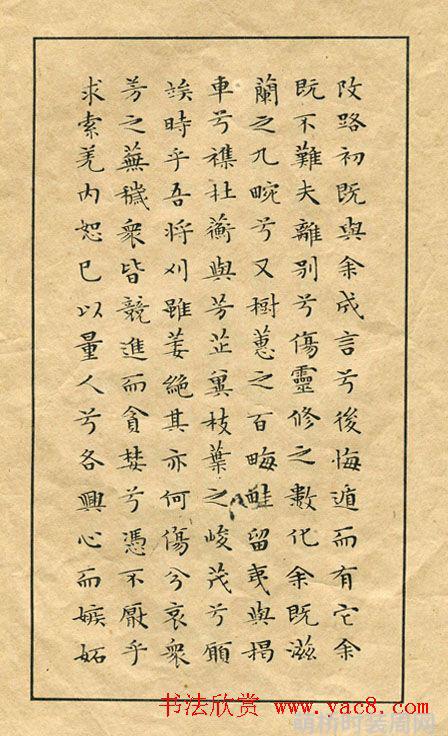 改路初既與余成言兮後悔遁而有它余
既不難夫離別兮傷靈修之數化余既滋
蘭之九畹兮又樹蕙之百畮畦留夷與揭
車兮襍杜蘅與芳芷冀枝葉之峻茂兮願
竢時乎吾將刈雖萎絕其亦何傷兮哀衆
芳之蕪穢衆皆競進而貪婪兮憑不厭乎
求索羌內恕已以量人兮各興心而嫉妬
书法欣赏 www.yac8.com